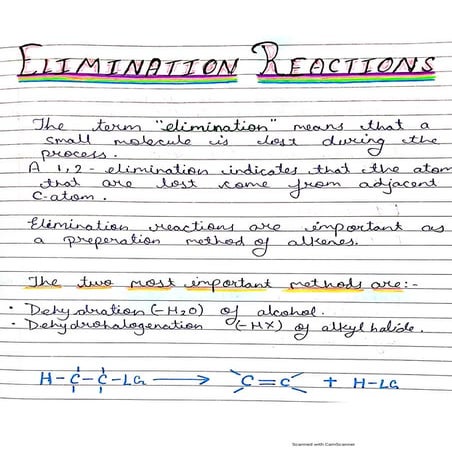 ELIMINATION REACTIONS
The term "elimination" means that a
small molecule is lost during the
process.
A 1,2 - elimination indicates that the atom
that are lost come from adjacent
C-atom.
Elimination reactions are important as
a preperation method of alkenes.
The two most important methods are:-
• Dehydration (-H2O) of alcohol.
• Dehydrohalogenation (-HX) of alkyl halide.
H-C-C-LG → C=C + H-LG
Scanned with CamScanner